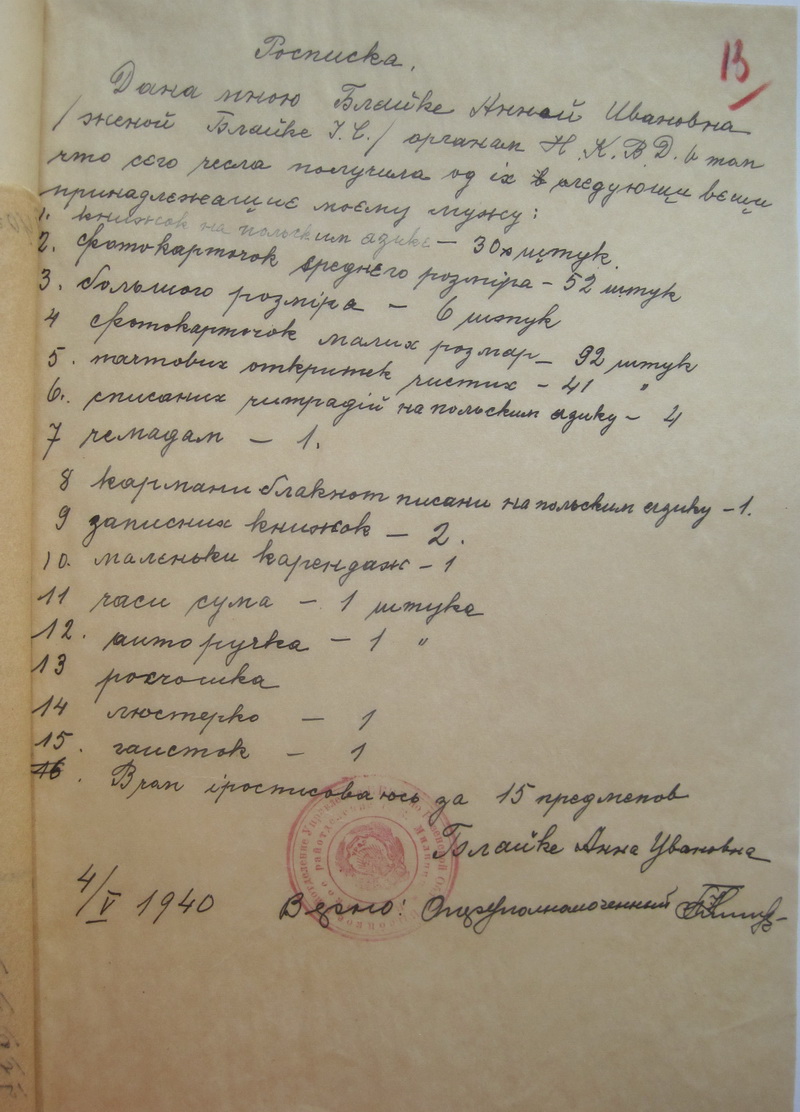 13
Росписка.
Дана мною Блайке Анной Ивановна
/женой Блайке І.С./ органам Н.К.В.Д. в том
что сого числа получила од іх в следующи вещи
принадлежащиє моєму мужу:
1. книжок на польским язике – 30х штук.
2. фотокарточок среднєго розміра – 52 штук
3. большого розміра – 6 штук
4 фотокарточок малих розмар – 92 штук
5. пачтових откриток чистих – 41 "
6. списаних читрадій на польским язику – 4
7 чемадам – 1.
8 кармани блакнот писани на польским язику – 1.
9 записних книжок – 2.
10. малєньки карендаж – 1
11 часи сума – 1 штука
12. аиторучка – 1 "
13
14 люстерко – 1
15. гаисток – 1
16. В чап іростисоваюсь за 15 предметов
Блайке Анна Увановна
4/V 1940 Верно: Оперуполномоченный